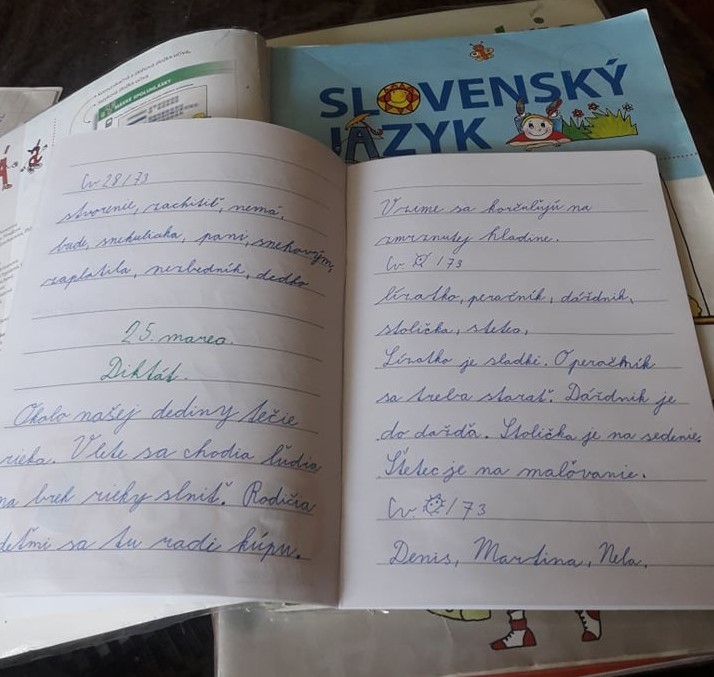 SLOVENSKÝ
JAZYK
MÄKKÉ SPOLUHLÁSKY
Cv 28/73
stvorenie, zachitiť, nemá,
bude, snehuliaka, pani, snehovým,
zaplatila, nezbedník, dedko
25. marec.
Diktát.
Okolo našej dediny tečie
rieka. V lete sa chodia ľudia
na breh rieky slniť. Rodičia
deťmi sa tu radi kúpu.
V zime sa korčuľujú na
zmrznutej hladine.
Cv. /73
lízatko, peračník, dáždnik,
stolička, štetec,
Lízatko je sladké. O peračník
sa treba starať. Dáždnik je
do dažďa. Stolička je na sedenie.
Štetec je na maľovanie.
Cv. /73
Denis, Martina, Nela,